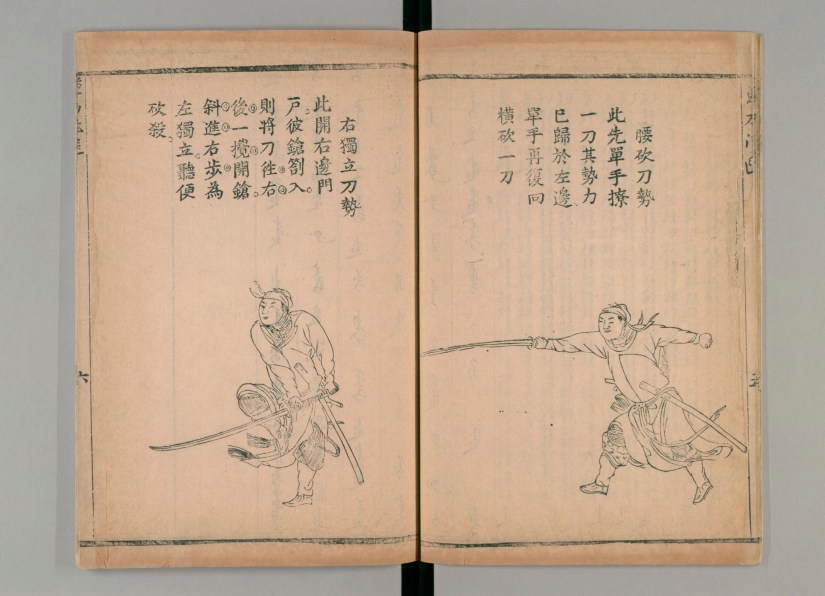 腰砍刀勢
此先單手撩
一刀其勢力
已歸於左邊
單手再復回
橫砍一刀
右獨立刀勢
此開右邊門
戶彼鎗劄入
則將刀徃右
後一攪開鎗
斜進右步為
左獨立聽便
砍殺
六